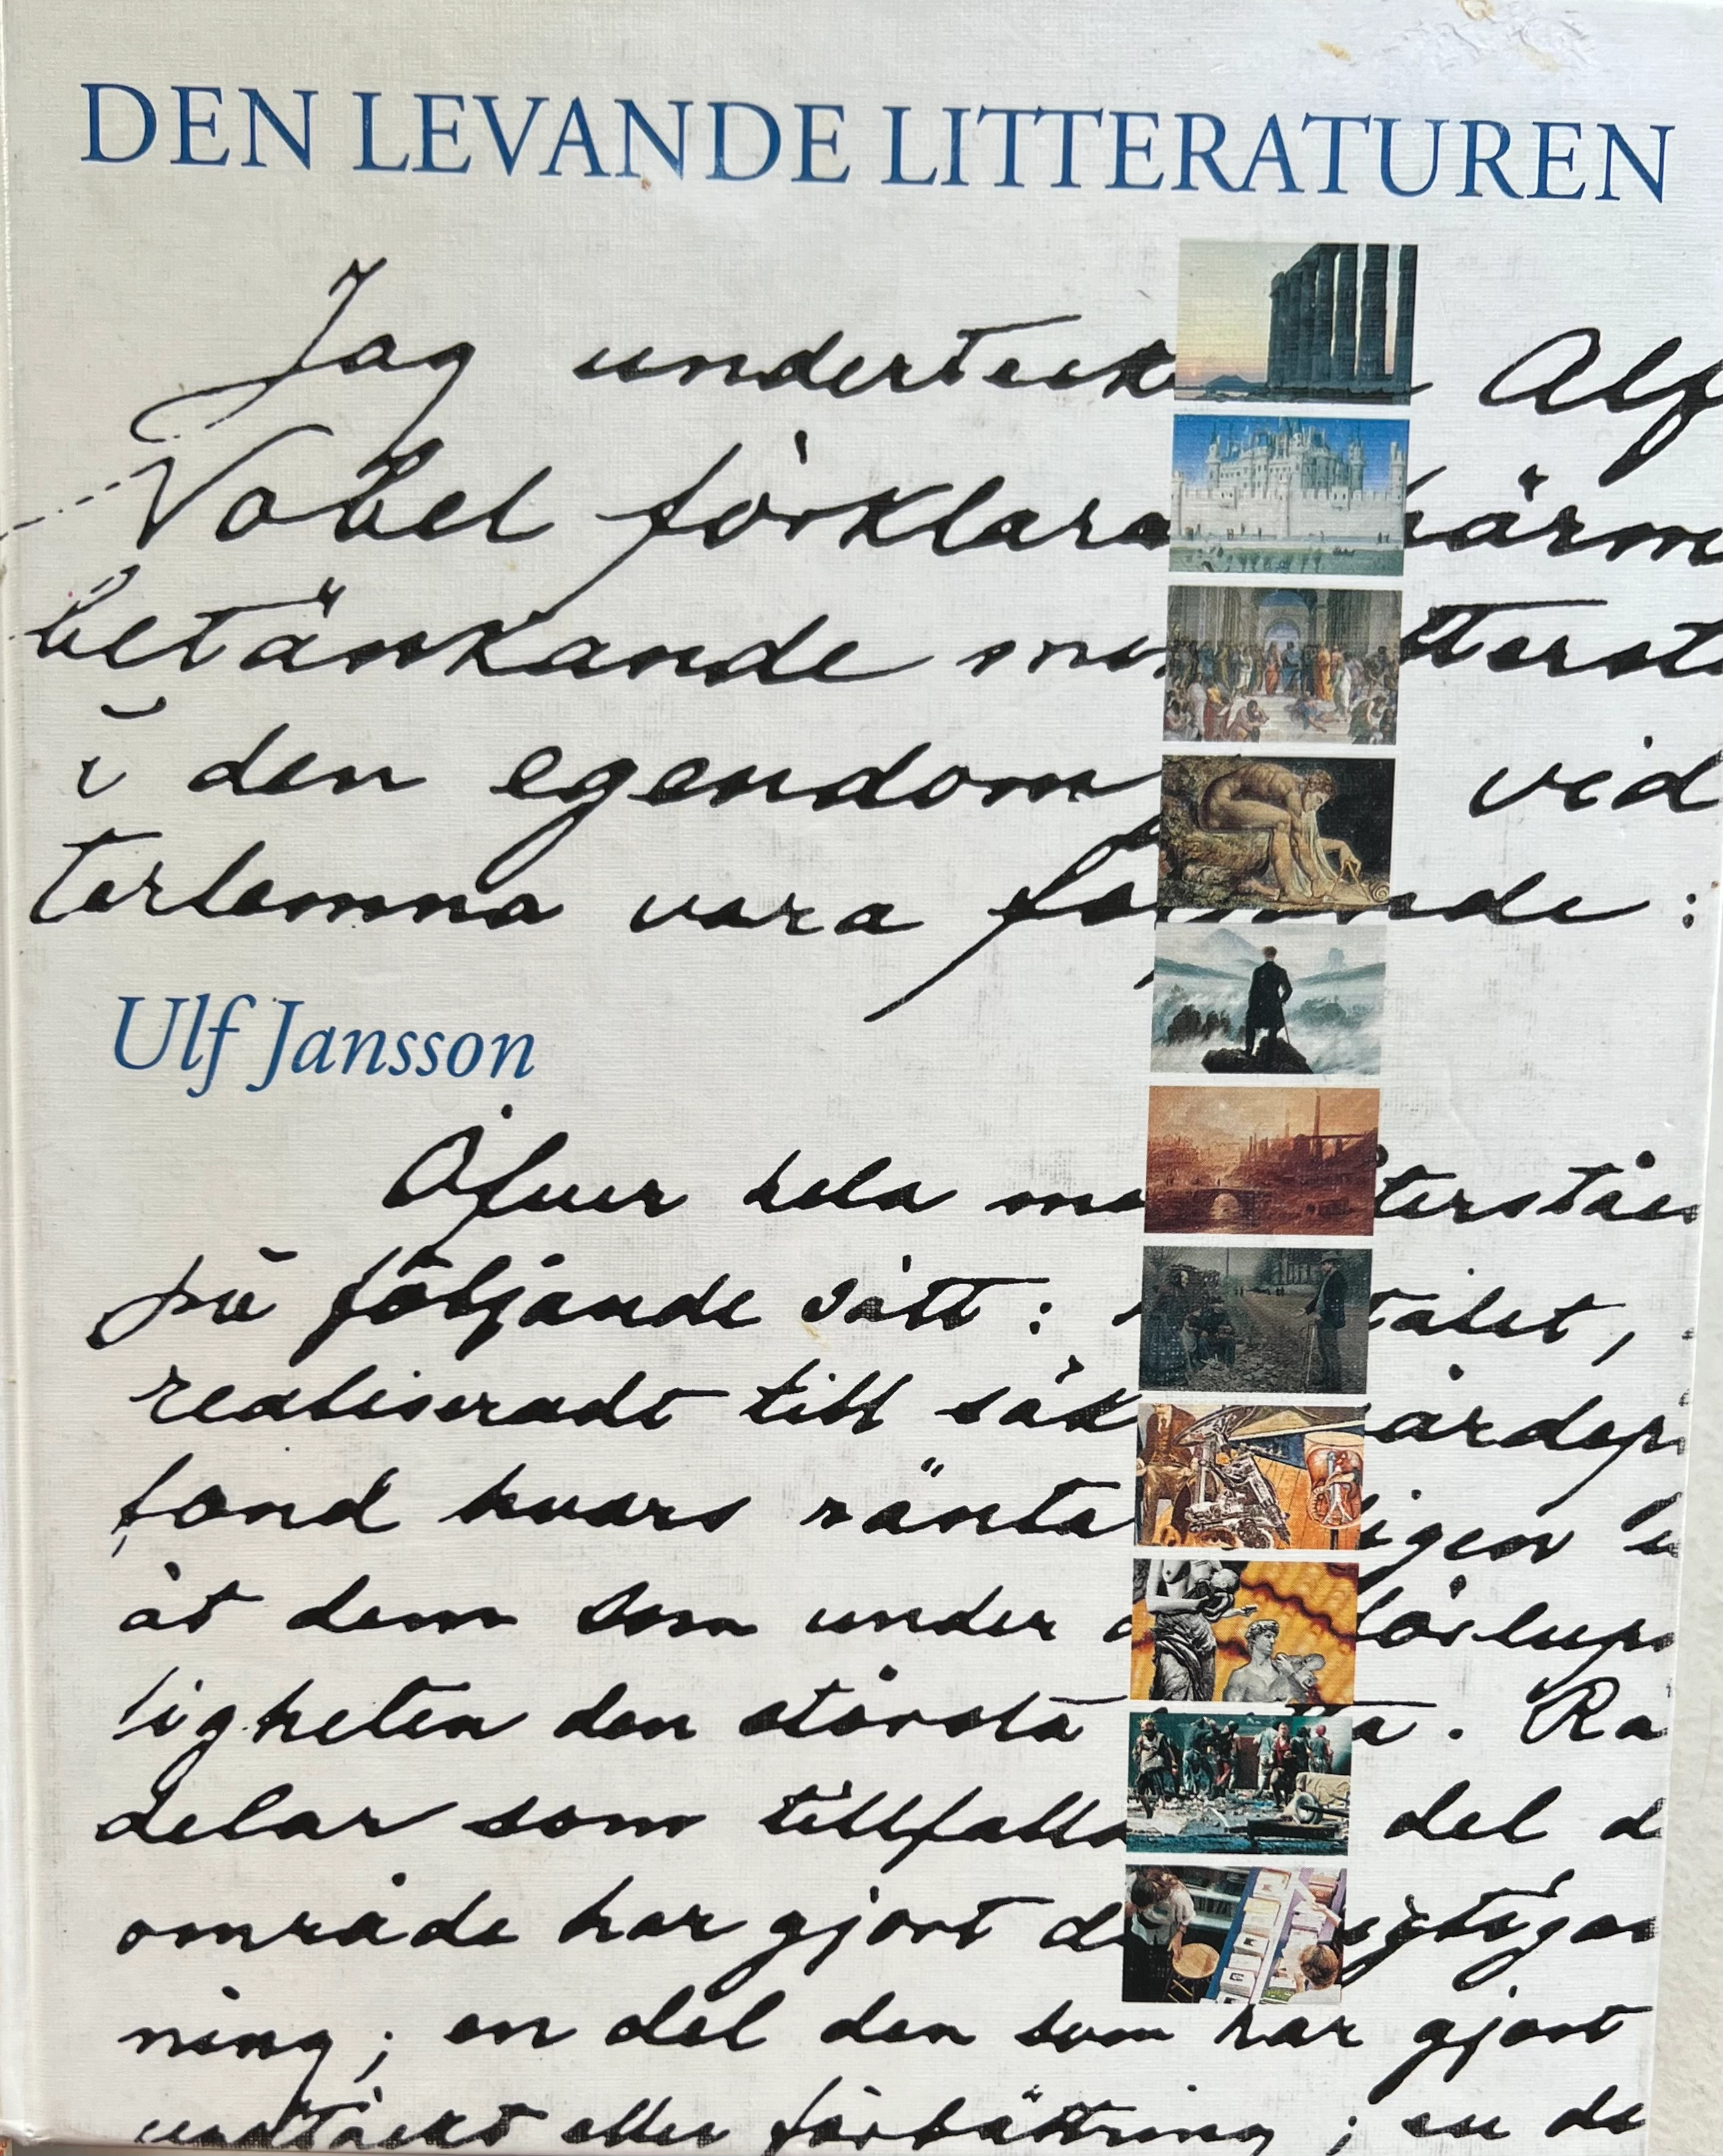 DEN LEVANDE LITTERATUREN
Jag underteck Alf
Nobel förklara härm
betänkande me tterst
i den egendom vid
terlemna vara fö ande:
Ulf Jansson
Öfver hela återståen
på följande sätt: talet,
realiseradt till säk värdep
fond hvars ränta ligen
åt dem som under förlupn
ligheten den största tta. Ra
delar som tillfalla del d
område har gjort d vigtigas
ning; en del den som har gjort
upptäckt eller förbättring; en de